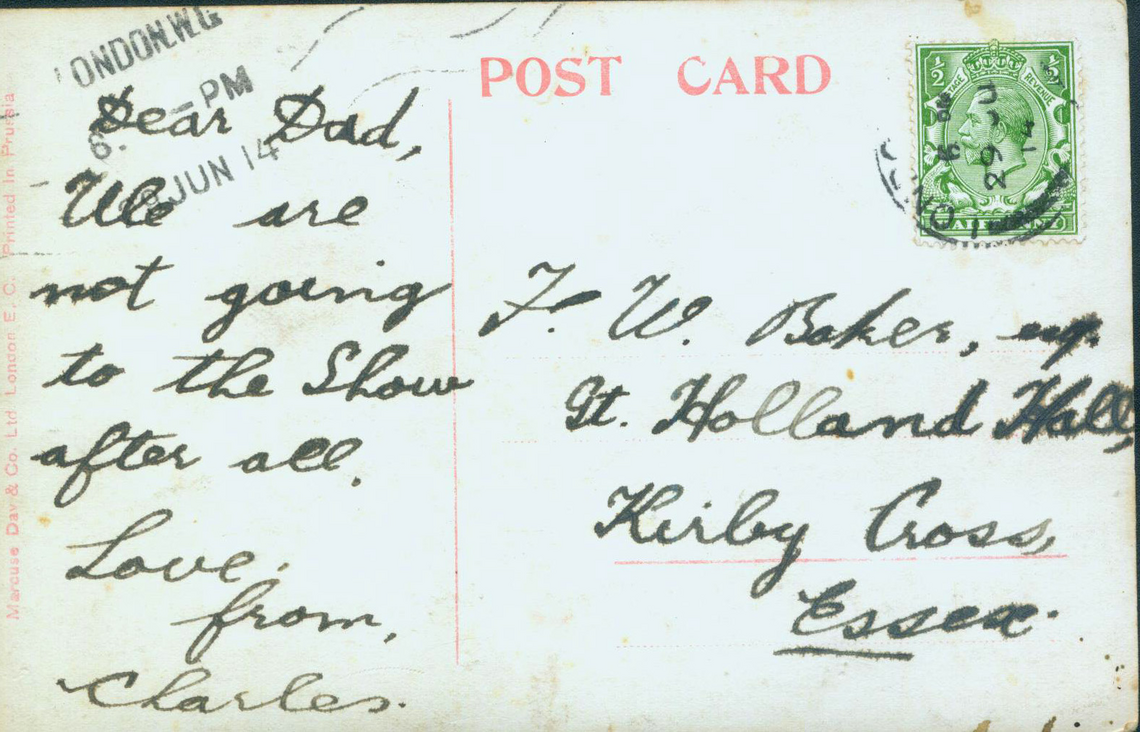 LONDON.W.C
6. — PM
JUN 14
POST CARD
½ ½
POSTAGE REVENUE
29 JU
14
Dear Dad,
We are
not going
to the Show
after all.
Love.
from,
Charles.
F. W. Baker, esq.
Gt. Holland Hall,
Kirby Cross,
Essex.
Marcuse Day & Co. Ltd London E. C. Printed In Prussia